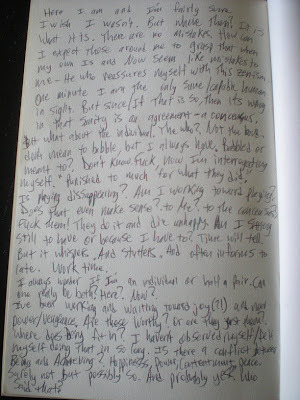 Here I am and I'm fairly sure
I wish I wasn't. But where then? It is
what it is. There are no mistakes. How can
I expect those around me to grasp that when
my own Is and Now seem like mistakes to
me - He who reassures myself with this zenism.
One minute I am the only sane/capable human
in sight. But since/if that is so, then it's wrong
in that sanity is an agreement - a concensus.
But what about the individual. The who?, Not the book.
didn't mean to babble, but I always have. Babbled or
meant to? Don't know. Fuck, Now I'm interrogating
myself. Punished to much for what they did.
Is playing disappearing? Am I working toward playing?
Does that even make sense? to me? to the concensus?
Fuck them! They do it and die unhappy. Am I
still to have or because I have to? Time will tell.
But it whispers. And stutters. And often informs to
late. Work time.
I always wonder if I'm an individual or half a pair. Can
one really be both? Here? Now?
I've been working and waiting toward joy(?!) and
power/vengeance. Are those worthy? Or are they just
Where does being fit in? I haven't observed myself/
myself doing that in so long. Is there a conflict between
Being and Achieving? Happiness, Power, Contentment, peace.
Surely not. But possibly so. And probably yes. Who
said that?